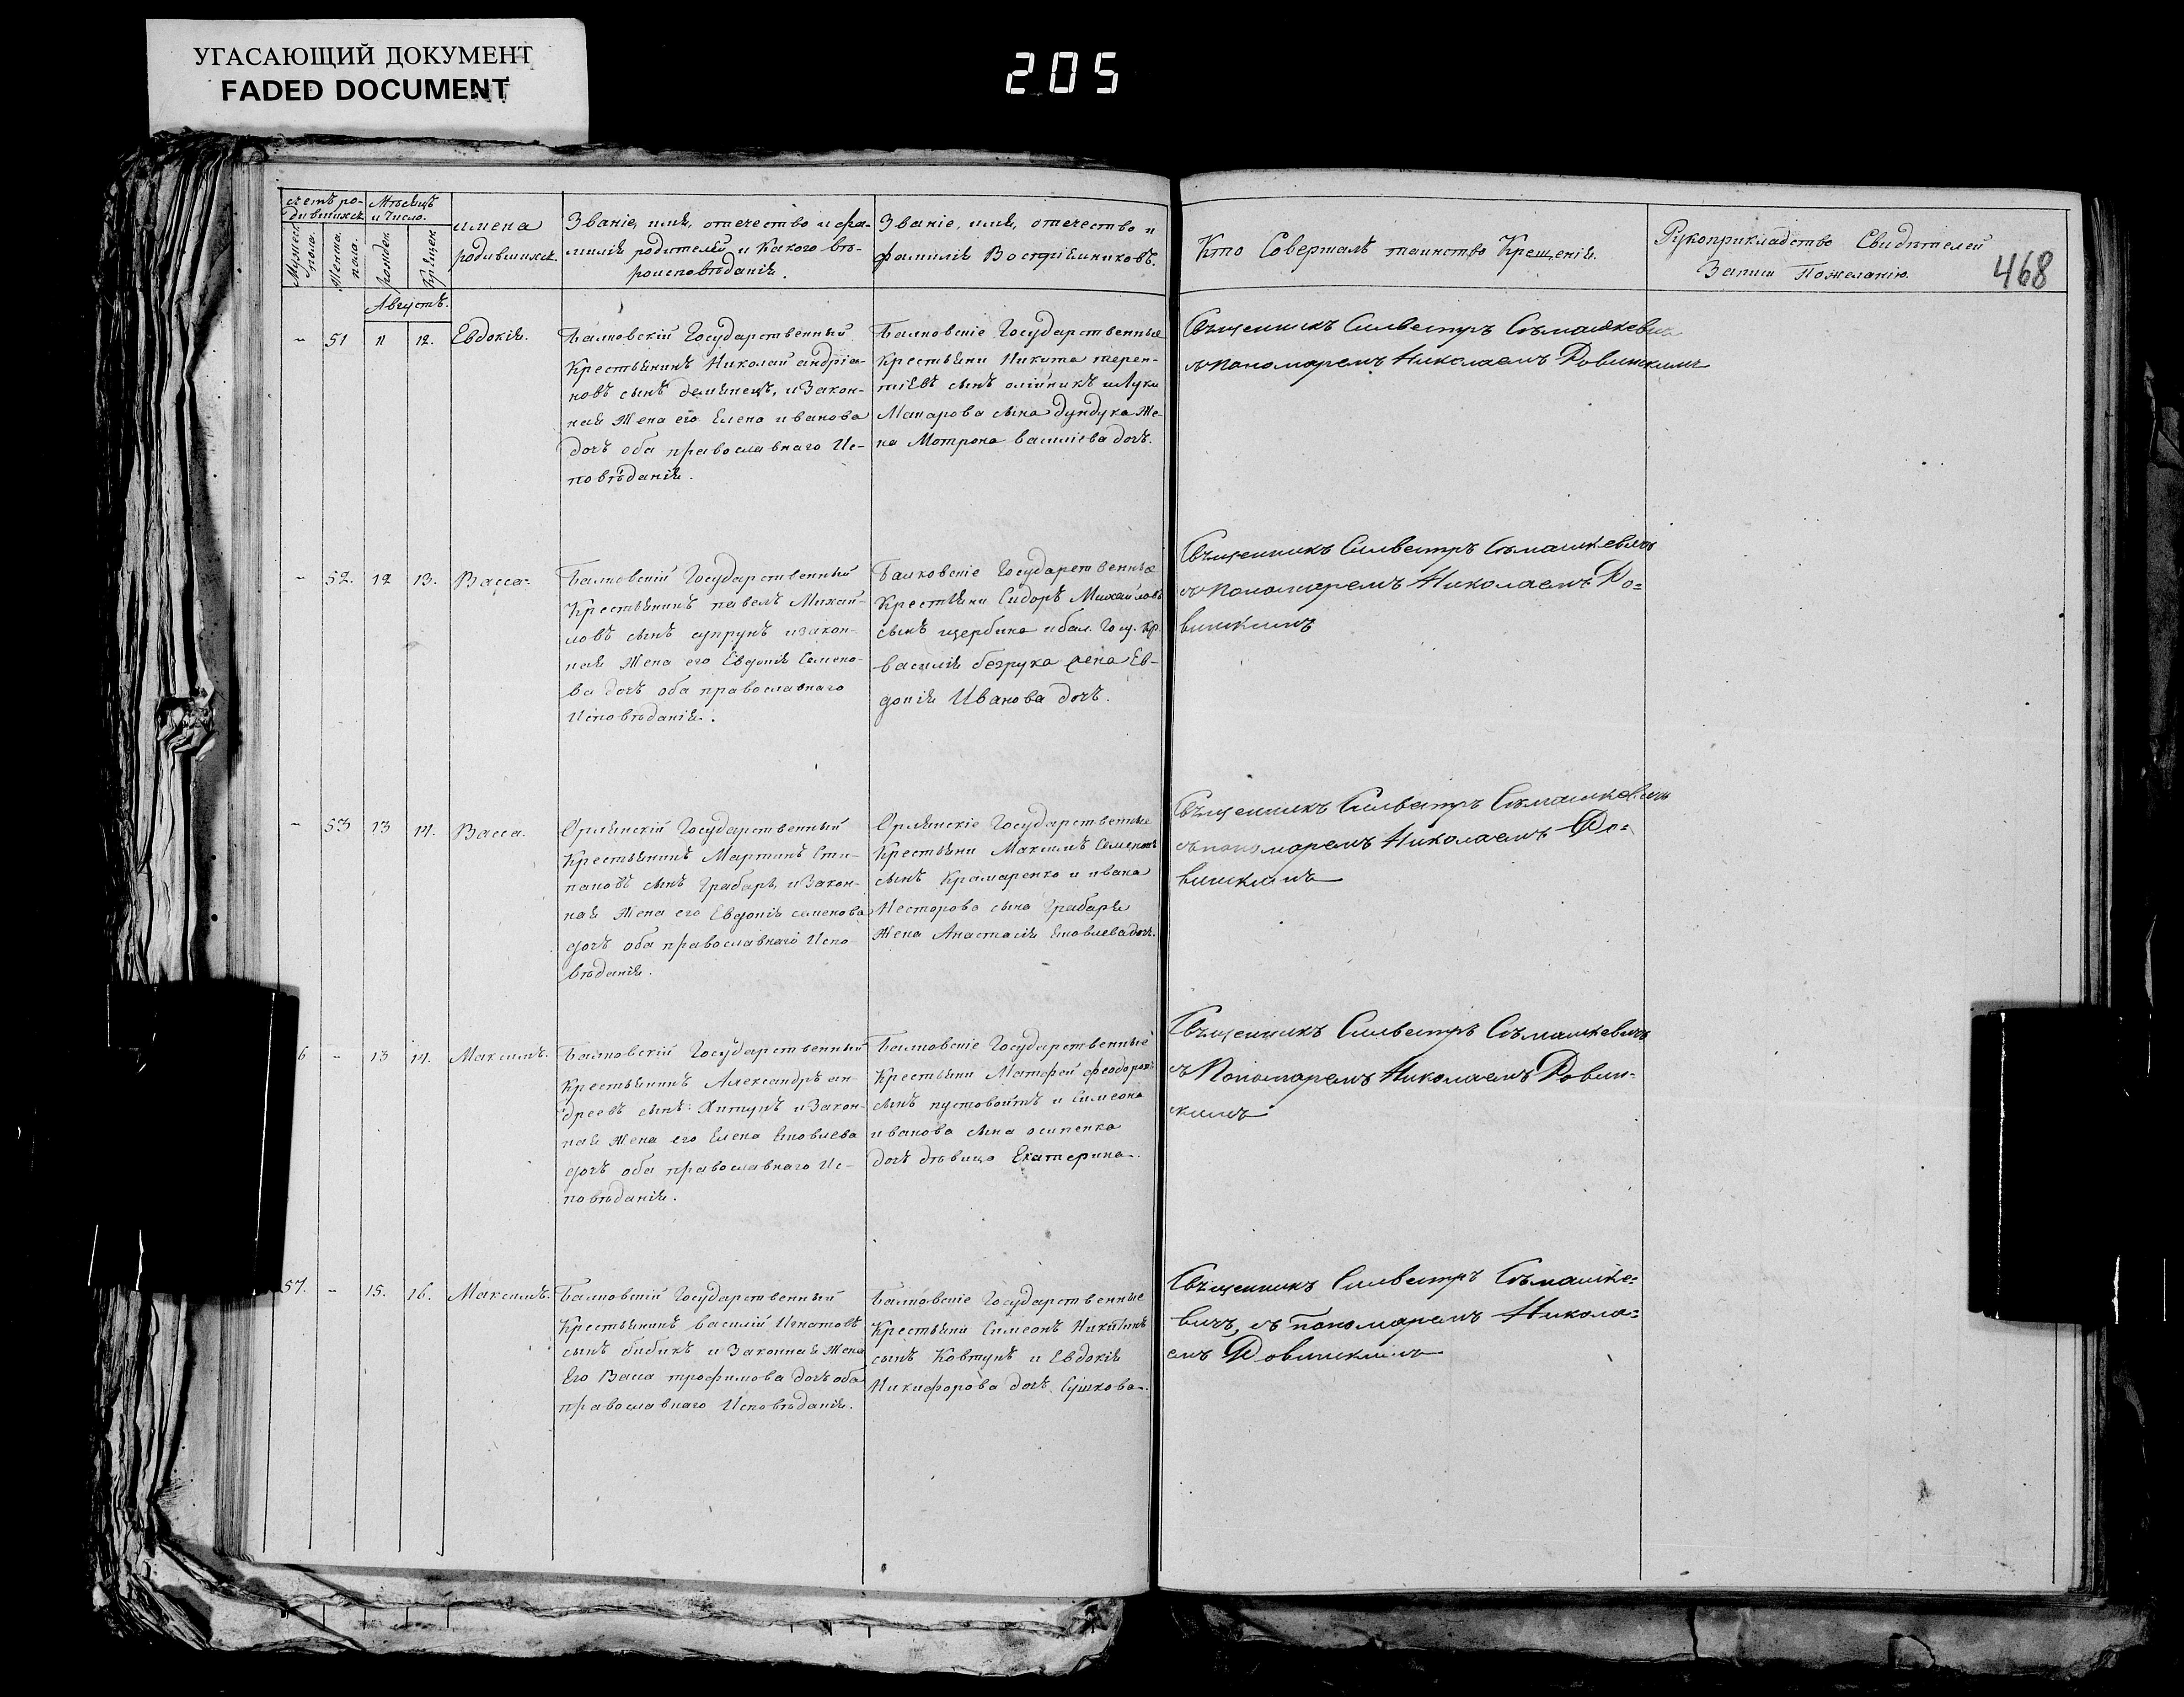 УГАСАЮЩИЙ ДОКУМЕНТ
FADED DOCUMENT
205
468
счетъ ро-
дившихся
Мѣсяцъ
и число.
Мужеск
пола.
Женска.
пола.
рожден
Крещен
имена
родившихся.
Званіе, имя, отечество и фа-
милія родителей и какого вѣ-
роисповѣданія.
Званіе, имя, отечество и
фамилія Воспріемниковъ.
Кто Совершалъ таинство Крещенія.
Рукоприкладство Свидѣтелей
Записи Пожеланію.
Августъ.
- 51 11 12. Евдокія.
Балковскій Государственный
Крестьянинъ Николай андріа-
новъ сынъ демянецъ, и Закон-
ная Жена его Елена иванова
дочъ оба православнаго Ис-
повѣданія.
Балковскіе Государственные
крестьяни Никита терен-
тіевъ сынъ олійникъ и Луки
Макарова сына дундука Же-
на Мотрона василіева дочъ.
Священникъ Силвестръ Сѣмашкевичъ
съ пономаремъ Николаемъ Ровинскимъ
- 52. 12 13. Васса.
Балковскій Государственный
Крестьянинъ павелъ Михай-
ловъ сынъ супрунъ и закон-
ная Жена его Евдокія Семено-
ва дочъ оба православнаго
Исповѣданія.
Балковскіе Государственные
Крестьяни Сидоръ Михайловъ
сынъ щербина и бал. Госу. кр.
василія безрука жена Ев-
докія Иванова дочъ.
Священникъ Силвестръ Сѣмашкевичъ
съ Пономаремъ Николаемъ Ро-
винскимъ
- 53 13 14. Васса.
Орлянскій Государственный
Крестьянинъ Мартинъ Сти-
пановъ сынъ Грабаръ, и Закон-
ная Жена его Евдокія семенова
дочъ оба православнаго Испо-
вѣданія.
Орлянскіе Государственые
Крестьяни Максимъ Семеновъ
сынъ Крамаренко и ивана
Несторова сына Грабаря
Жена Анастасія Яковлева доч.
Священникъ Силвестръ Сѣмашкевичъ
съ пономаремъ Николаемъ Ро-
винскимъ
6 - 13 14. Максимъ.
Балковскій Государственный
Крестьянинъ Александръ ан-
дреевъ сынъ Яптунъ и Закон-
ная Жена его Елена Яковлева
дочъ оба православнаго Ис-
повѣданія.
Балковскіе Государственные
Крестьяни Матфей феодоровъ
сынъ пустовойтъ и Симеона
иванова сына осипенка
дочъ дѣвица Екатерина.
Священникъ Силвестръ Сѣмашкевичъ
съ Пономаремъ Николаемъ Ровин-
скимъ
57. - 15. 16. Максимъ.
Балковскій Государственный
Крестьянинъ василій Игнатовъ
сынъ бибикъ и Законная Жена
Его Васса трофимова дочъ оба
православнаго Исповѣданія.
Балковскіе Государственные
Крестьяни Симеонъ Никитинъ
сынъ Ковтунъ и Евдокія
Никифорова дочъ Сушкова.
Священникъ Силвестръ Сѣмашке-
вичъ, съ пономаремъ Никола-
емъ Ровинскимъ